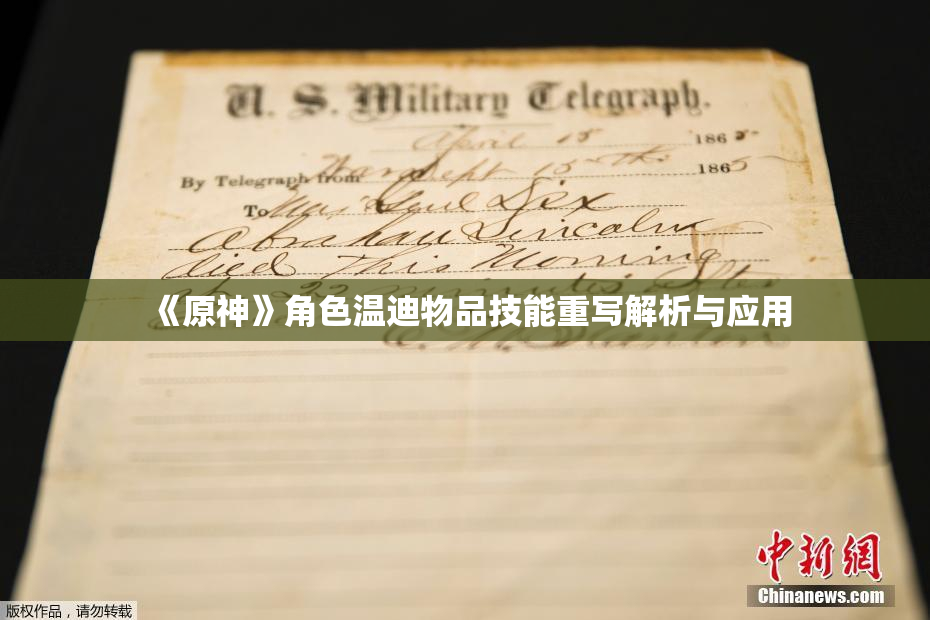 U. S. Military Telegraph.
April 15 1865
By Telegraph from War Dept 15th 1865
To Maj Genl Dix
Abraham Lincoln
died This Morning
at 22 minutes after
《原神》角色温迪物品技能重写解析与应用
中新網
Chinanews.com
版权作品，请勿转载